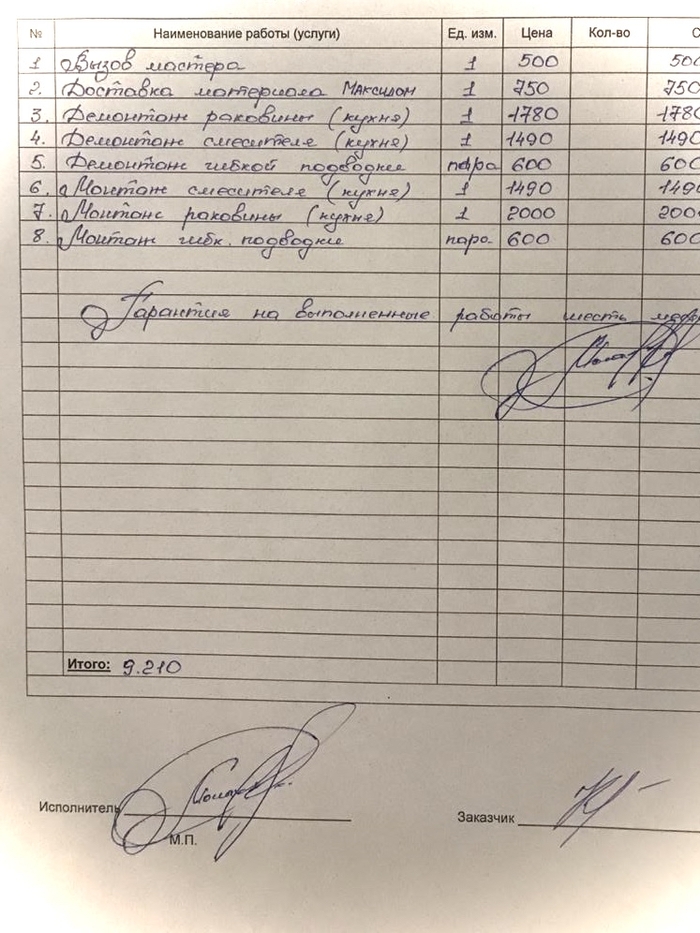 № Наименование работы (услуги) Ед. изм. Цена Кол-во С
1 Вызов мастера 1 500 500
2. Доставка материала Максидом 1 750 750
3. Демонтаж раковины (кухня) 1 1780 1780
4. Демонтаж смесителя (кухня) 1 1490 1490
5. Демонтаж гибкой подводки пара 600 600
6. Монтаж смесителя (кухня) 1 1490 1490
7. Монтаж раковины (кухня) 1 2000 2000
8. Монтаж гибк. подводки пара 600 600
Гарантия на выполненные работы шесть
Итого: 9.210
Исполнитель
Заказчик
М.П.